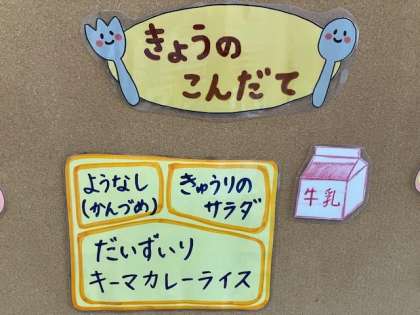 きょうの
こんだて
ようなし
(かんづめ)
きゅうりの
サラダ
牛乳
だいずいり
キーマカレーライス